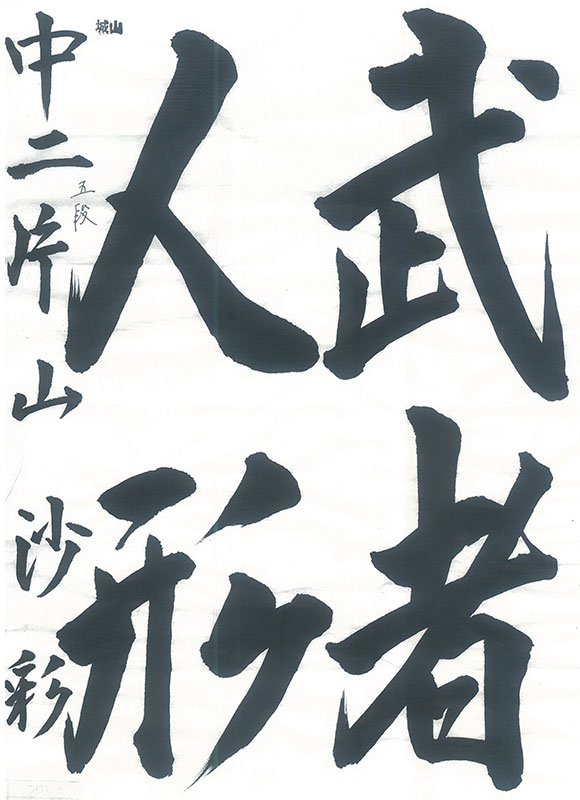 武者
人形
城山
中二片山沙彩
五段